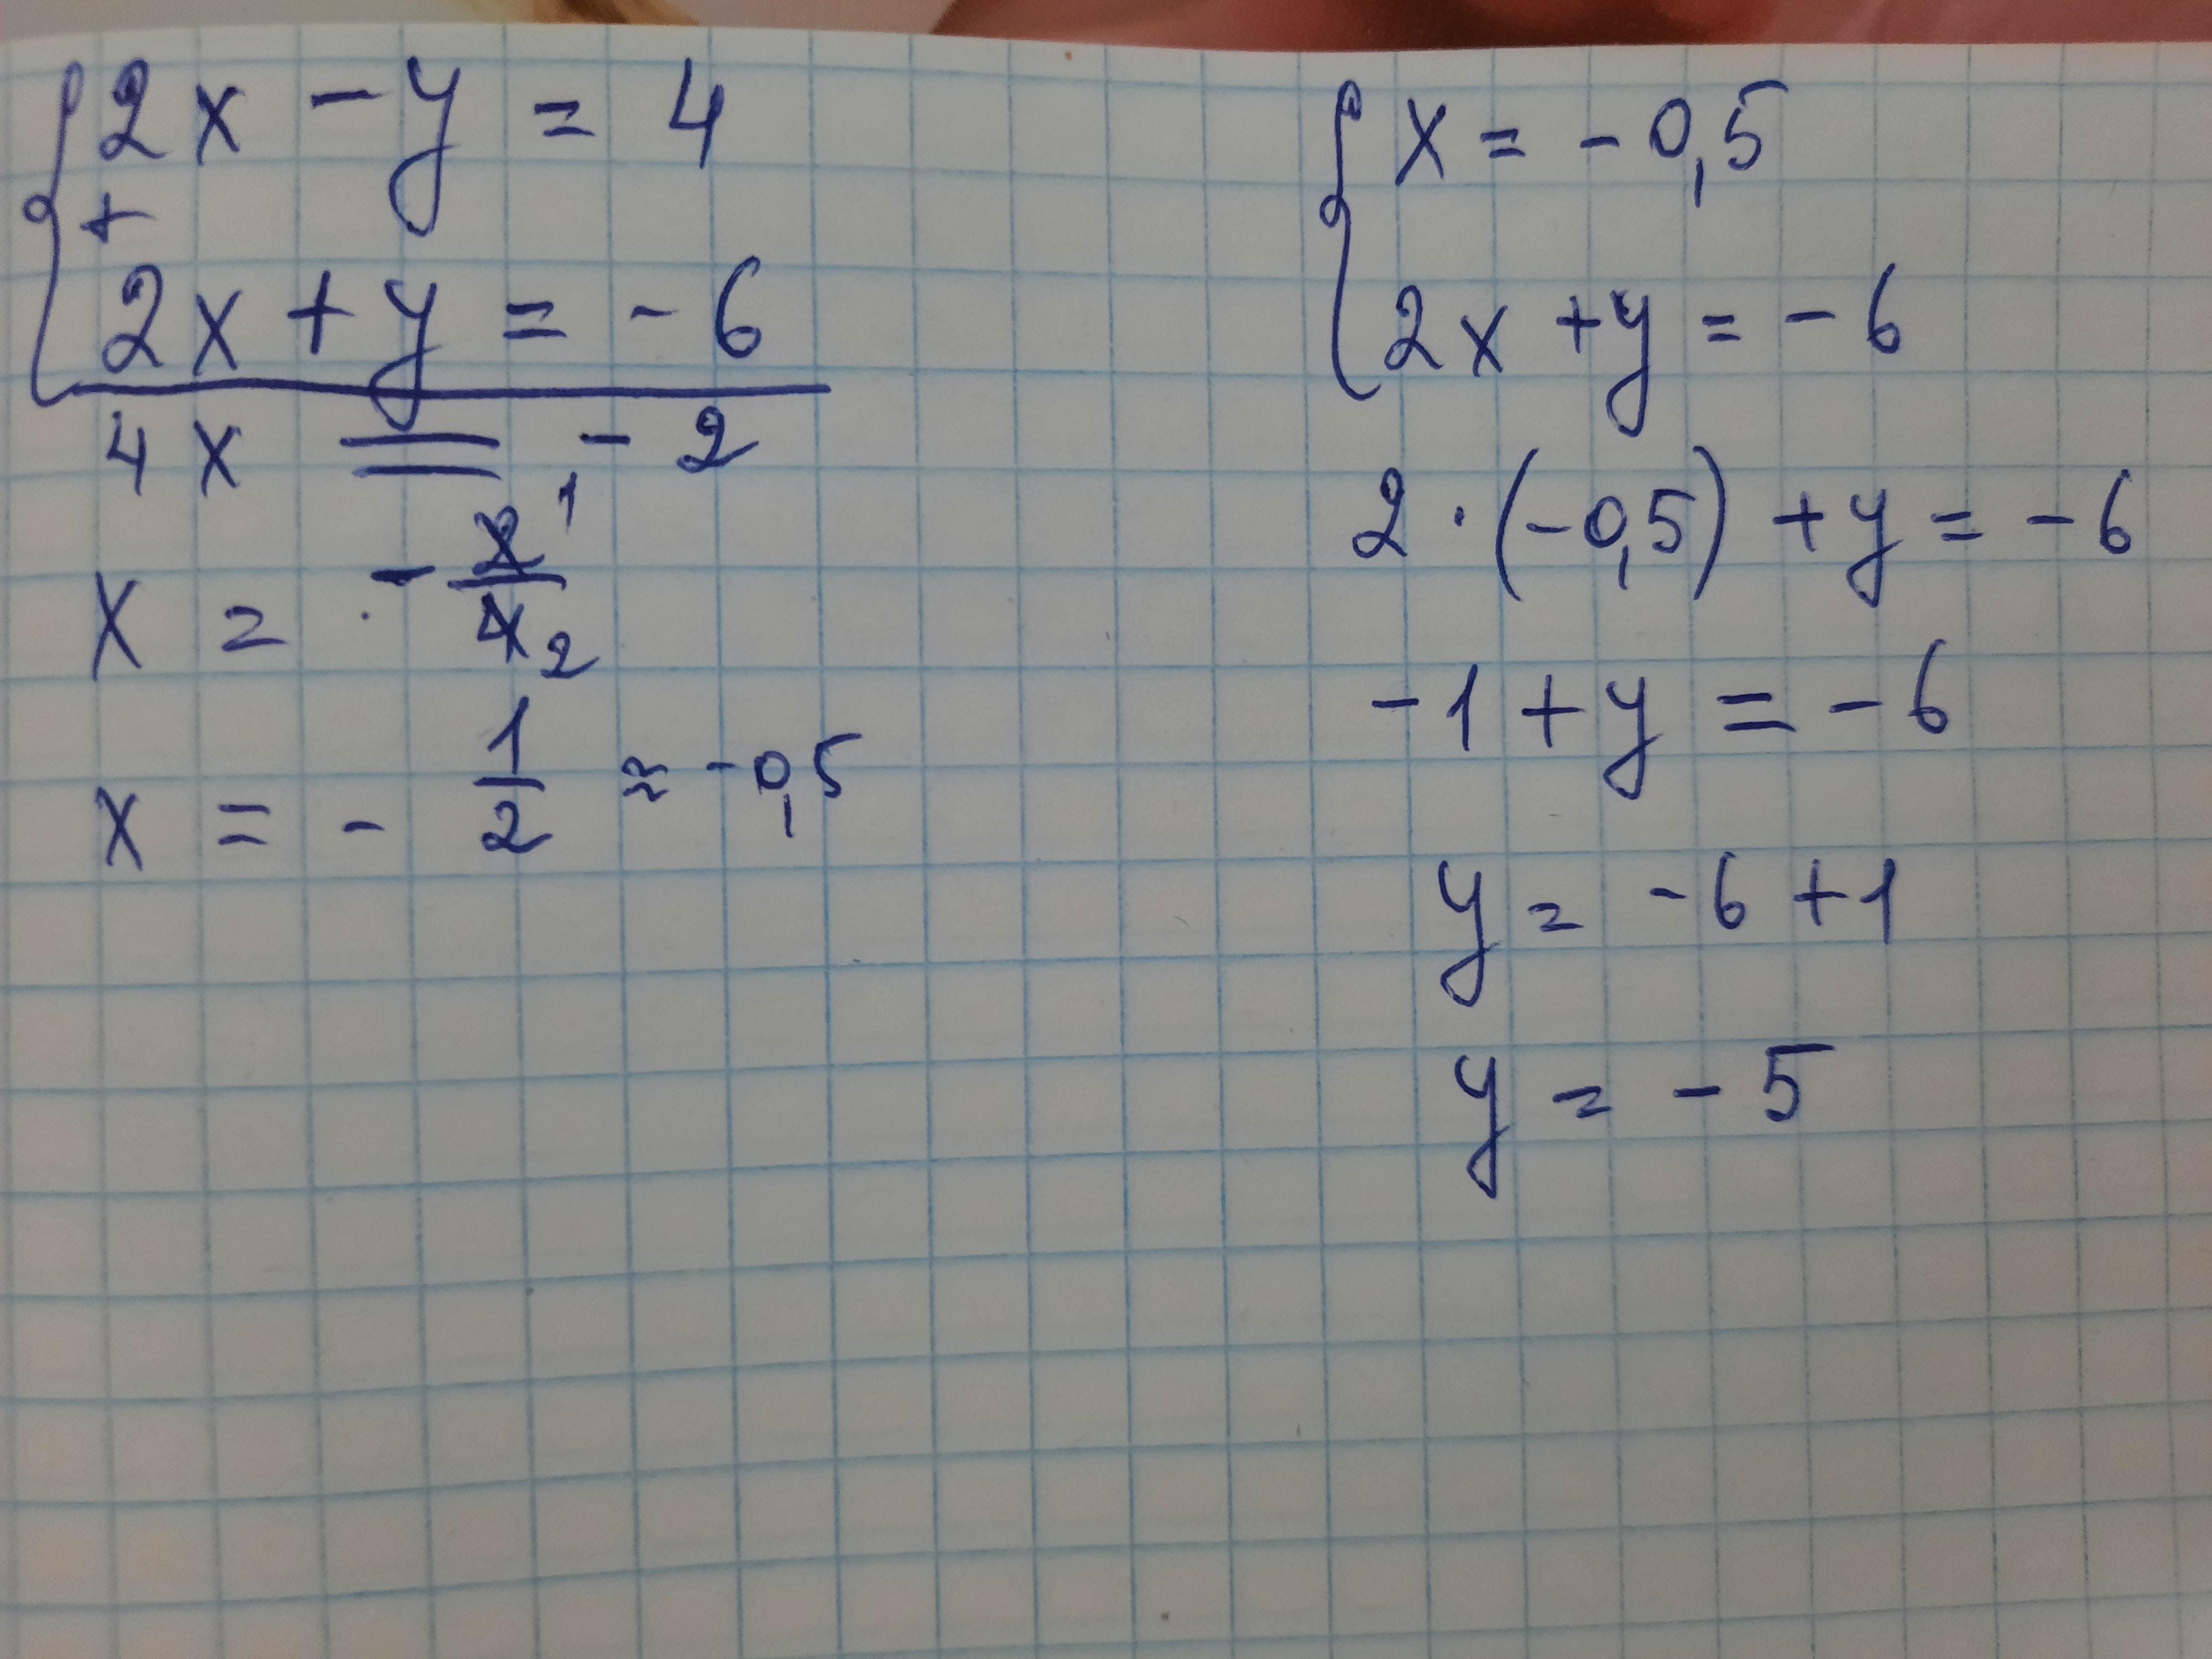 2x - y = 4
+
2x + y = - 6
4x = - 2
x = - 2/4 1 2
x = - 1/2 ≈ -0,5
x = - 0,5
2x + y = - 6
2 · (-0,5) + y = - 6
-1 + y = - 6
y = - 6 + 1
y = - 5